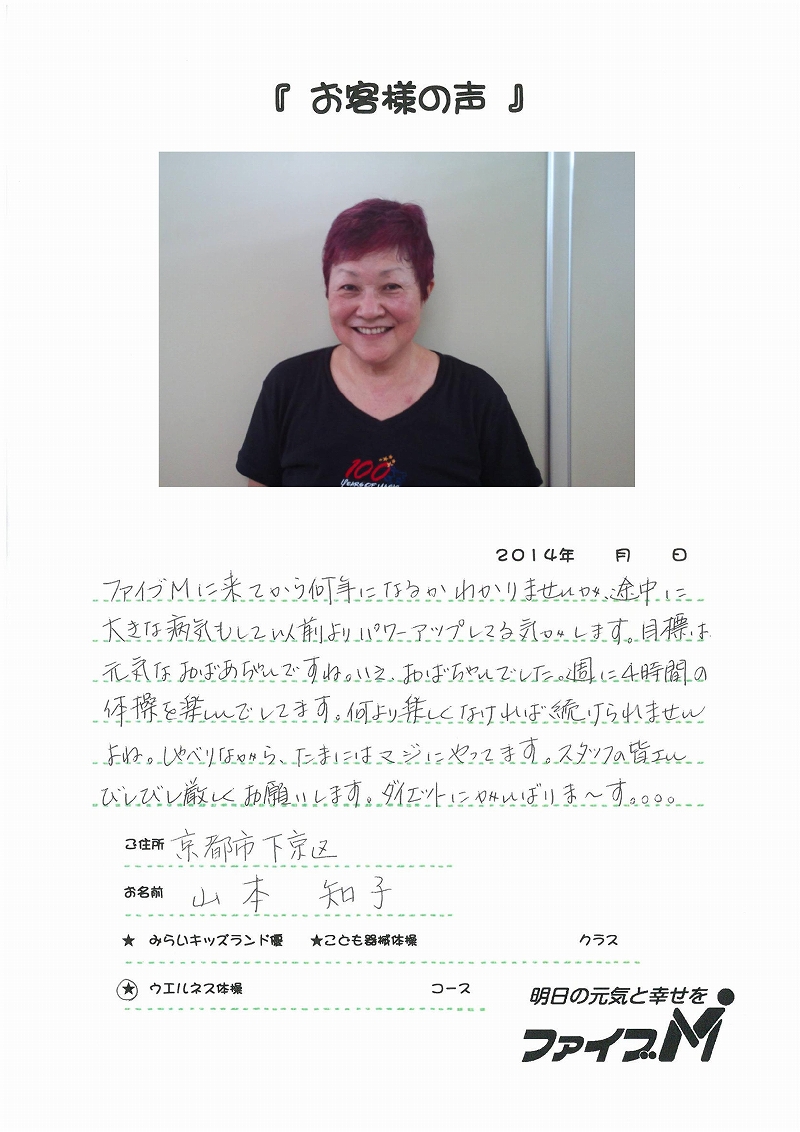 『 お客様の声 』
100
YEARS OF
2014年 月 日
ファイブMに来てから何年になるかわかりませんが、途中に
大きな病気もして以前よりパワーアップしてる気がします。目標は
元気なおばあぢゃんですね。いえ、おばちゃんでした。週に4時間の
体操を楽しんでしてます。何より楽しくなければ続けられません
よね。しゃべりながら、たまにはマジにやってます。スタッフの皆さん
びしびし厳しくお願いします。ダイエットにがんばりま〜す。。。。
ご住所 京都市下京区
お名前 山本 知子
★ みらいキッズランド優 ★こども器械体操 クラス
★ ウエルネス体操 コース
明日の元気と幸せを
ファイブM